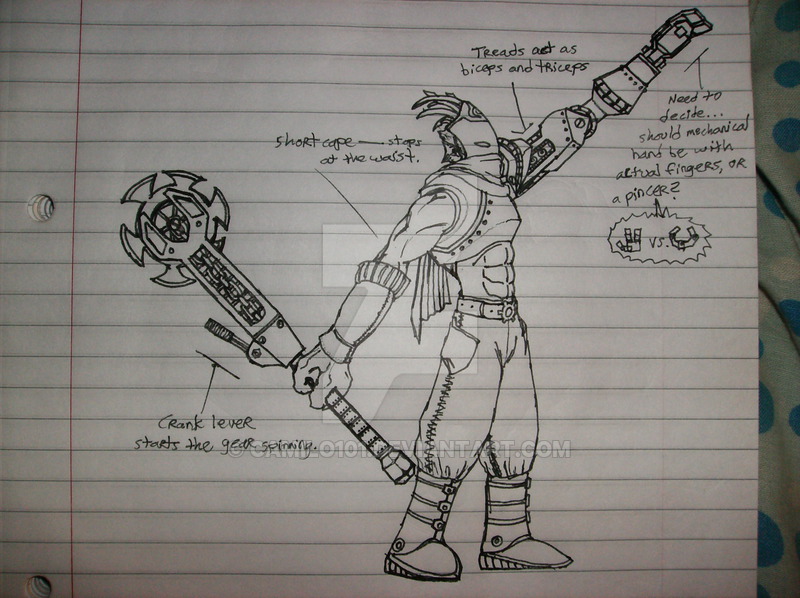 Treads act as
biceps and triceps
Need to
decide...
should mechanical
hand be with
actual fingers, or
a pincer?
vs.
short cape — stops
at the waist.
Crank lever
starts the gear spinning.